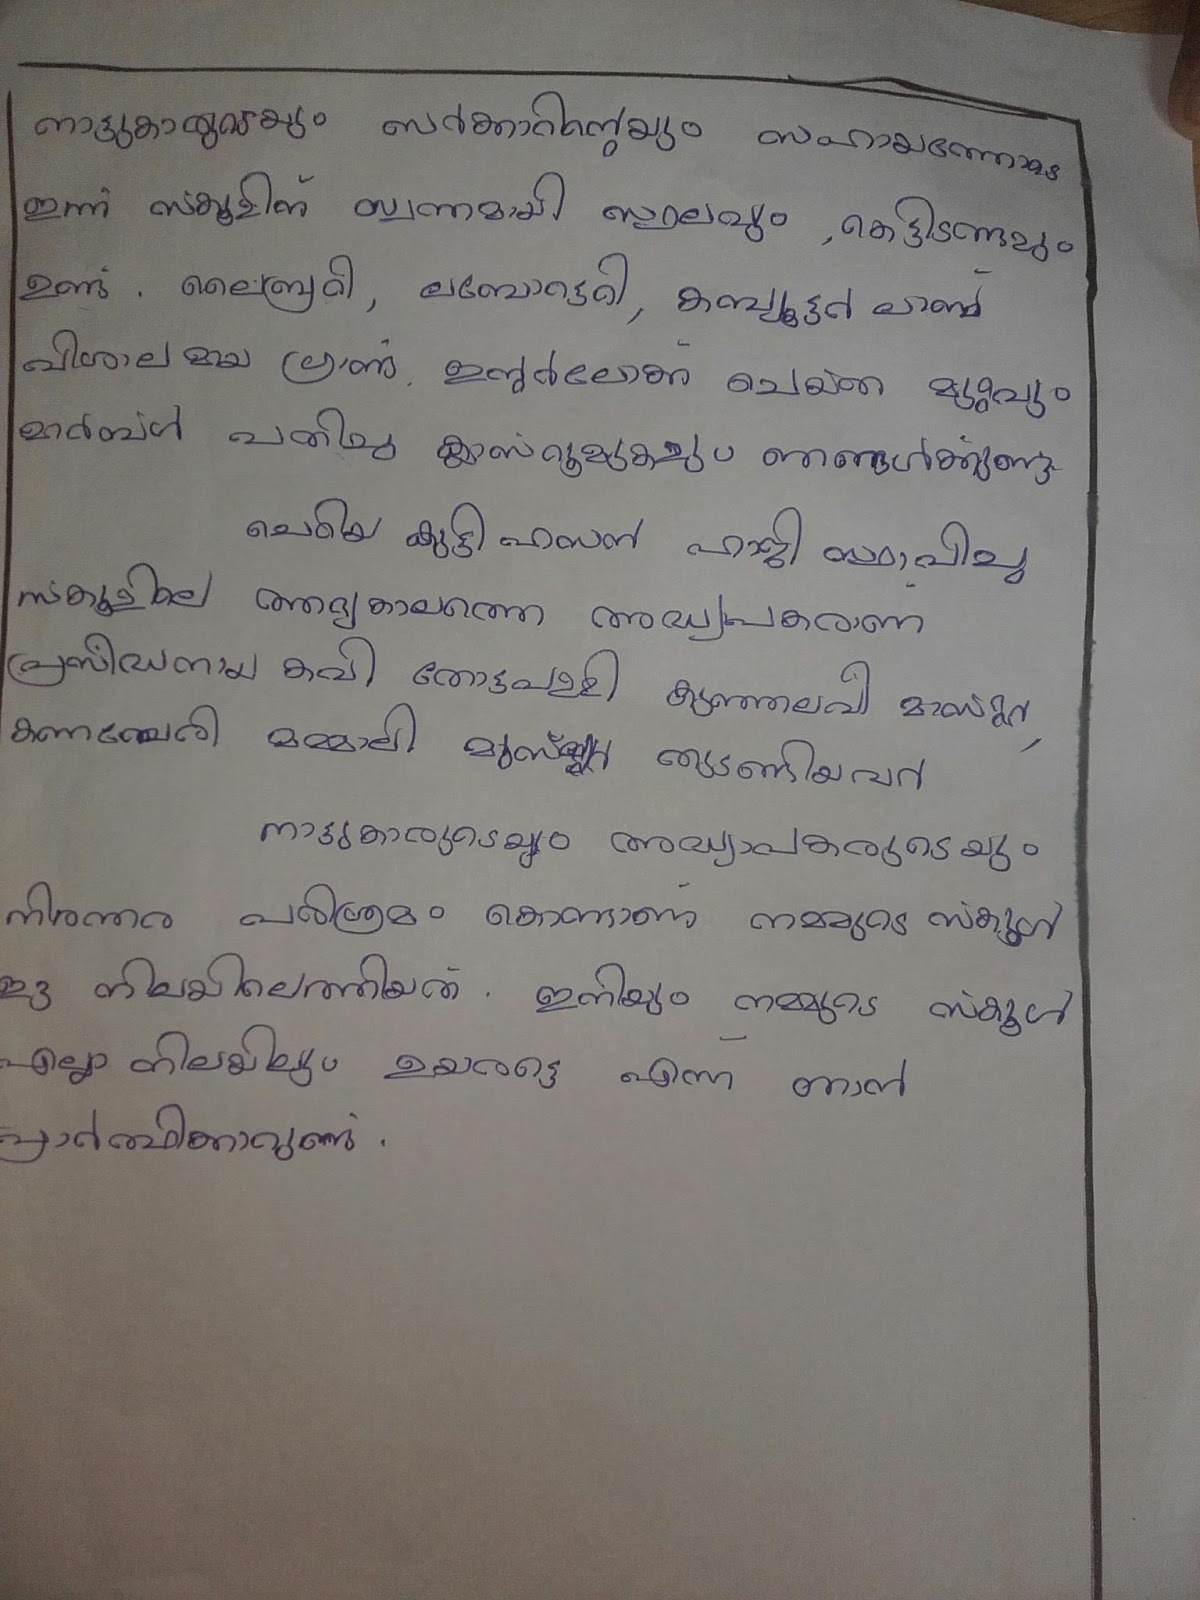 നാട്ടുകാരുടെയും സർക്കാറിന്റെയും സഹായത്തോടെ
ഇന്ന് സ്കൂളിന് സ്വന്തമായി സ്ഥലവും ,കെട്ടിടങ്ങളും
ഉണ്ട്. ലൈബ്രറി, ലബോറട്ടറി, കമ്പ്യൂട്ടർ ലാബ്
വിശാലമായ ഗ്രൗണ്ട്. ഇന്റർലോക്ക് ചെയ്ത മുറ്റവും
മാർബ്ൾ പതിച്ച ക്ലാസ്റൂമുകളും ഞങ്ങൾക്കുണ്ട്
ചെറിയ കുട്ടി ഹസൻ ഹാജി സ്ഥാപിച്ച
സ്കൂളിലെ ആദ്യകാലത്തെ അദ്ധ്യാപകരാണ്
പ്രസിദ്ധനായ കവി തോട്ടപള്ളി കുഞ്ഞലവി മാസ്റ്റർ,
മമ്മാലി തുടങ്ങിയവർ
നാട്ടുകാരുടെയും അദ്ധ്യാപകരുടെയും
നിരന്തര പരിശ്രമം കൊണ്ടാണ് നമ്മുടെ സ്കൂൾ
ഈ നിലയിലെത്തിയത്. ഇനിയും നമ്മുടെ സ്കൂൾ
എല്ലാ നിലയിലും ഉയരട്ടെ എന്ന് ഞാൻ
പ്രാർത്ഥിക്കാവുണ്ട്.